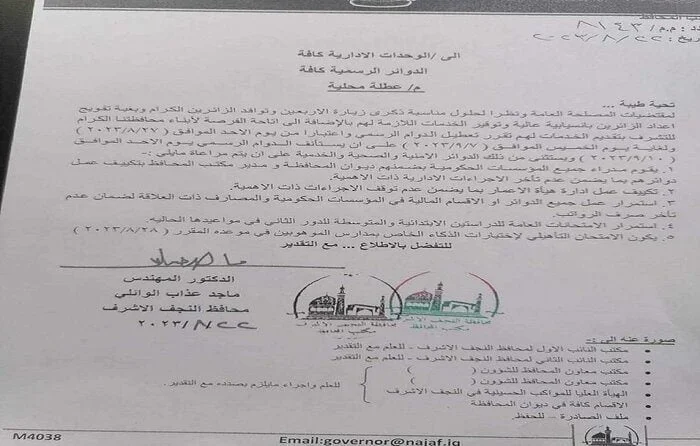 المحافظ
العدد: م.م/ ٨١٤٣
التاريخ: ٢٠٢٣/٨/٢٢
الى /الوحدات الادارية كافة
الدوائر الرسمية كافة
م/ عطلة محلية
تحية طيبة ...
لمقتضيات المصلحة العامة ونظرا لحلول مناسبة ذكرى زيارة الاربعين وتوافد الزائرين الكرام وبغية تفويج
اعداد الزائرين بانسيابية عالية وتوفير الخدمات اللازمة لهم بالإضافة الى اتاحة الفرصة لأبناء محافظتنا الكرام
للتشرف بتقديم الخدمات لهم تقرر تعطيل الدوام الرسمي واعتبارا من يوم الاحد الموافق (٢٠٢٣/٨/٢٧)
ولغاية يوم الخميس الموافق (٢٠٢٣/٩/٧) على ان يستأنف الدوام الرسمي يوم الاحد الموافق
(٢٠٢٣/٩/١٠) ويستثنى من ذلك الدوائر الامنية والصحية والخدمية على ان يتم مراعاة مايلي:-
١. يقوم مدراء جميع المؤسسات الحكومية بضمنهم ديوان المحافظة و مدير مكتب المحافظ بتكييف عمل
دوائر هم بما يضمن عدم تأخر الاجراءات الادارية ذات الاهمية.
٢. تكييف عمل ادارة هيأة الاعمار بما يضمن عدم توقف الاجراءات ذات الاهمية.
٣. استمرار عمل جميع الدوائر او الاقسام المالية في المؤسسات الحكومية والمصارف ذات العلاقة لضمان عدم
تأخر صرف الرواتب.
٤. استمرار الامتحانات العامة للدراستين الابتدائية والمتوسطة للدور الثاني في مواعيدها الحالية.
٥. يكون الامتحان التأهيلي لإختبارات الذكاء الخاص بمدارس الموهوبين في موعده المقرر (٢٠٢٣/٨/٢٨)
للتفضل بالاطلاع ... مع التقدير
الدكتور المهندس
ماجد عذاب الوائلي
محافظ النجف الاشرف
٢٠٢٣/٨/٢٢
محافظة النجف الاشرف
مكتب المحافظ
محافظة النجف الاشرف
مكتب المحافظ
صورة عنه الى :-
• مكتب النائب الاول لمحافظ النجف الاشرف - للعلم مع التقدير
• مكتب النائب الثاني لمحافظ النجف الاشرف - للعلم مع التقدير
• مكتب معاون المحافظ للشؤون ( )
• مكتب معاون المحافظ للشؤون ( )
• الهيأة العليا للمواكب الحسينية في النجف الاشرف
للعلم واجراء مايلزم بصدده مع التقدير.
• الاقسام كافة في ديوان المحافظة
• ملف الصادرة - للحفظ
M4038
Email:governor@najaf.iq